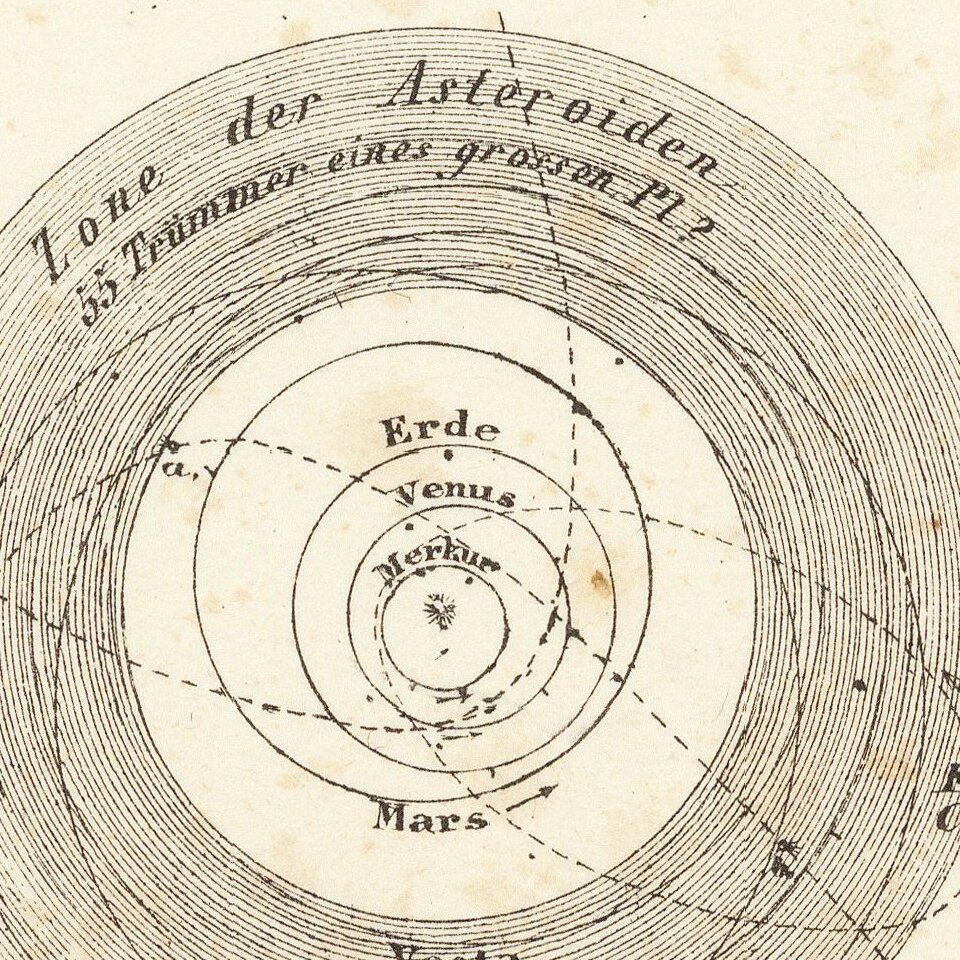 Zone der Asteroiden
55 Trümmer eines grossen Pl?
Erde
Venus
Merkur
a.
Mars
Vesta